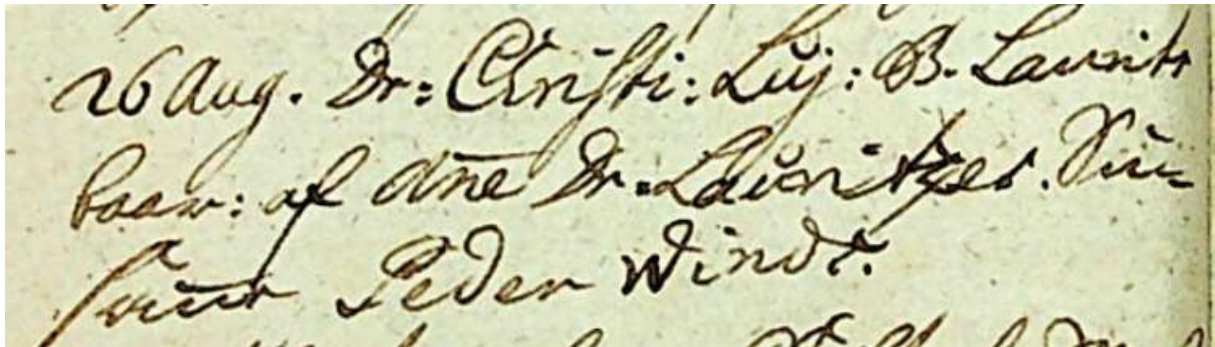 26 Aug. Dr: Christi: Luj: B. Laurits
baar: af Ane Dr: Lauritzes. Sui
faur Peder Windt.